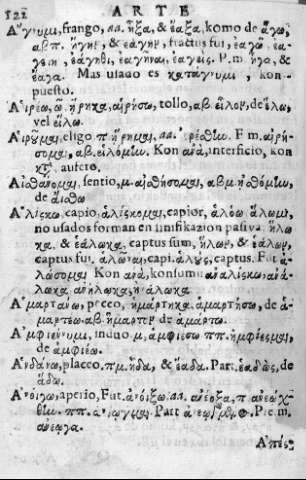 122 ARTE
Ἄγνυμι, frango, αα. ἧξα, & ἔαξα, komo de ἄγω,
αβπ. ἠγην, & ἐάγην, fractus fui, ἐάγω, ἐα-
γείην, ἐάγηθι, ἐαγῆναι, ἐαγείς. P.m. ἦγα, &
ἔαγα. Mas usado es κατάγνυμι, kon-
puesto.
Αἱρέω, ᾕρηκα, αἱρήσω, tollo, αβ. εἷλον, de ἕλω,
vel
Αἱροῦμαι, eligo. π ᾕρημαι, αα. F.m. αἱρή-
σομαι, αβ. εἱλόμην. Kon ἀνά, interficio, kon
Αἰσθάνομαι, sentio, μ. αἰσθήσομαι, αβμ. ᾐσθόμην,
de αἴσθω
Ἁλίσκω, capio, ἁλίσκομαι, capior, ἁλόω ἅλωμι,
no usados forman en sinifikazion pasiva ἥλω
κα. & ἑάλωκα. captus sum, ἥλων, & ἑάλων,
captus fui. ἁλῶναι, capi. ἁλούς, captus. Fut ἁ-
λώσομαι. Kon ἀνά, konsumir ἀναλίσκω, ἀνά-
λωκα
Ἁμαρτάνω, pecco, ἡμάρτηκα, ἁμαρτήσω, de ἁ-
μαρτέω. αβ. ἥμαρτον de ἁμάρτω.
Ἀμφιέννυμι, induo μ, ἀμφιέσω ππ. ἠμφίεσμαι,
de ἀμφιέω.
Ἁνδάνω, placeo, πμ. ἧδα, & ἔαδα. Part. ἑαδώς, de
ἅδω.
Ἀνοίγω, aperio, Fut. ἀνοίξω. αα. ἀνέῳξα, π ἀνέῳχα
ππ. Part P.e.m.
ἀνέῳγα.